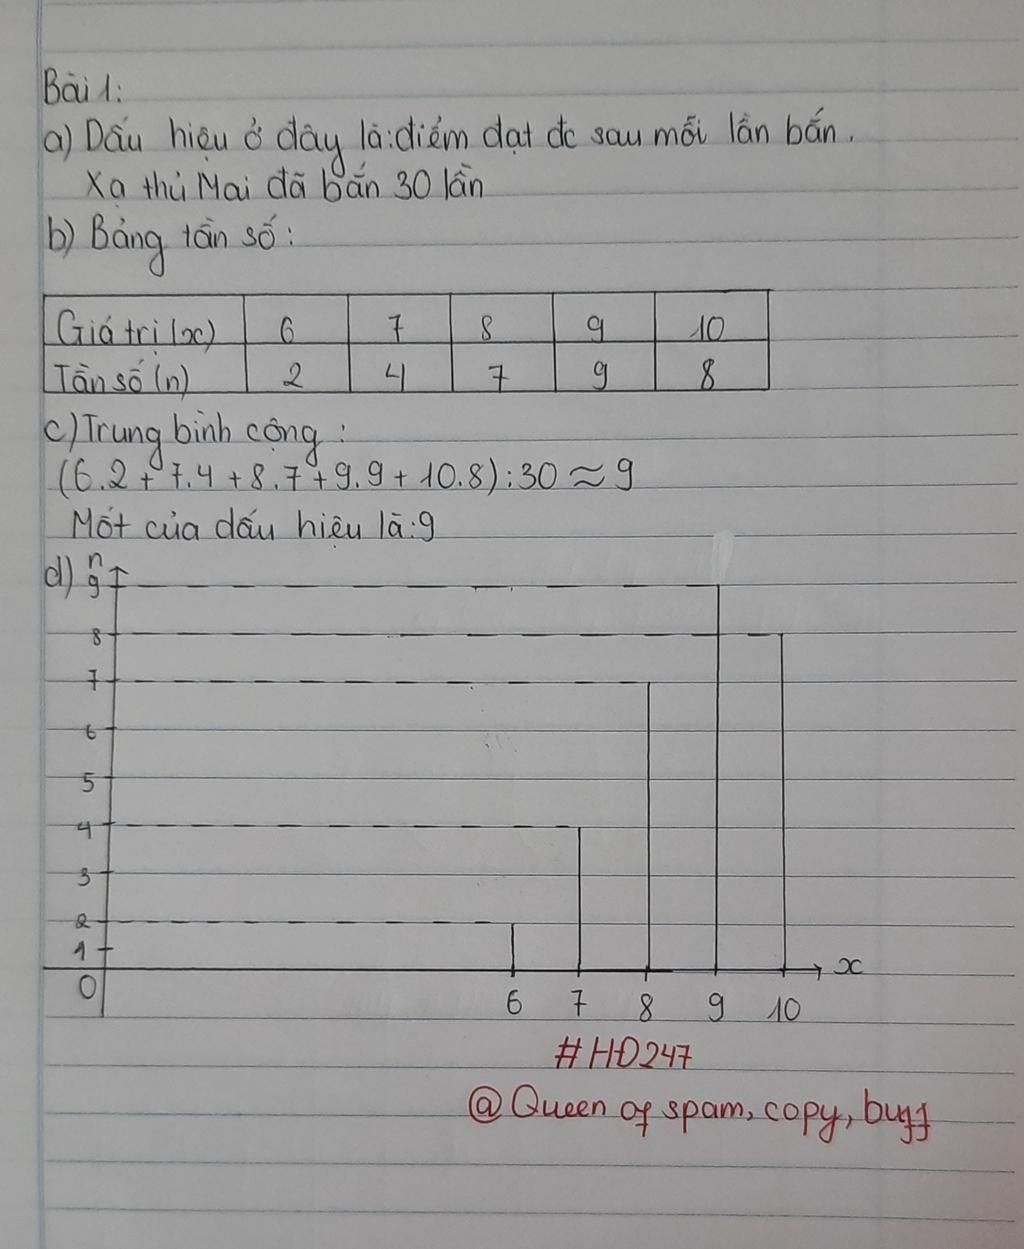 Bài 1:
a) Dấu hiệu ở đây là: điểm đạt đc sau mỗi lần bắn.
Xạ thủ Mai đã bắn 30 lần
b) Bảng tần số:
Giá trị (x) 6 7 8 9 10
Tần số (n) 2 4 7 9 8
c) Trung bình cộng:
(6.2 + 7.4 + 8.7 + 9.9 + 10.8) : 30 ≈ 9
Mốt của dấu hiệu là: 9
d) n
9
8
7
6
5
4
3
2
1
0
x
6 7 8 9 10
#HD247
@Queen of spam, copy, buff